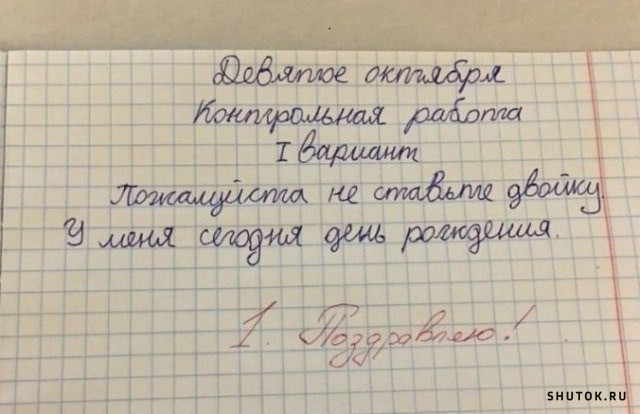 Девятое октября
Контрольная работа
I вариант
Пожалуйста не ставьте двойку.
У меня сегодня день рождения.
1. Поздравляю!
SHUTOK.RU